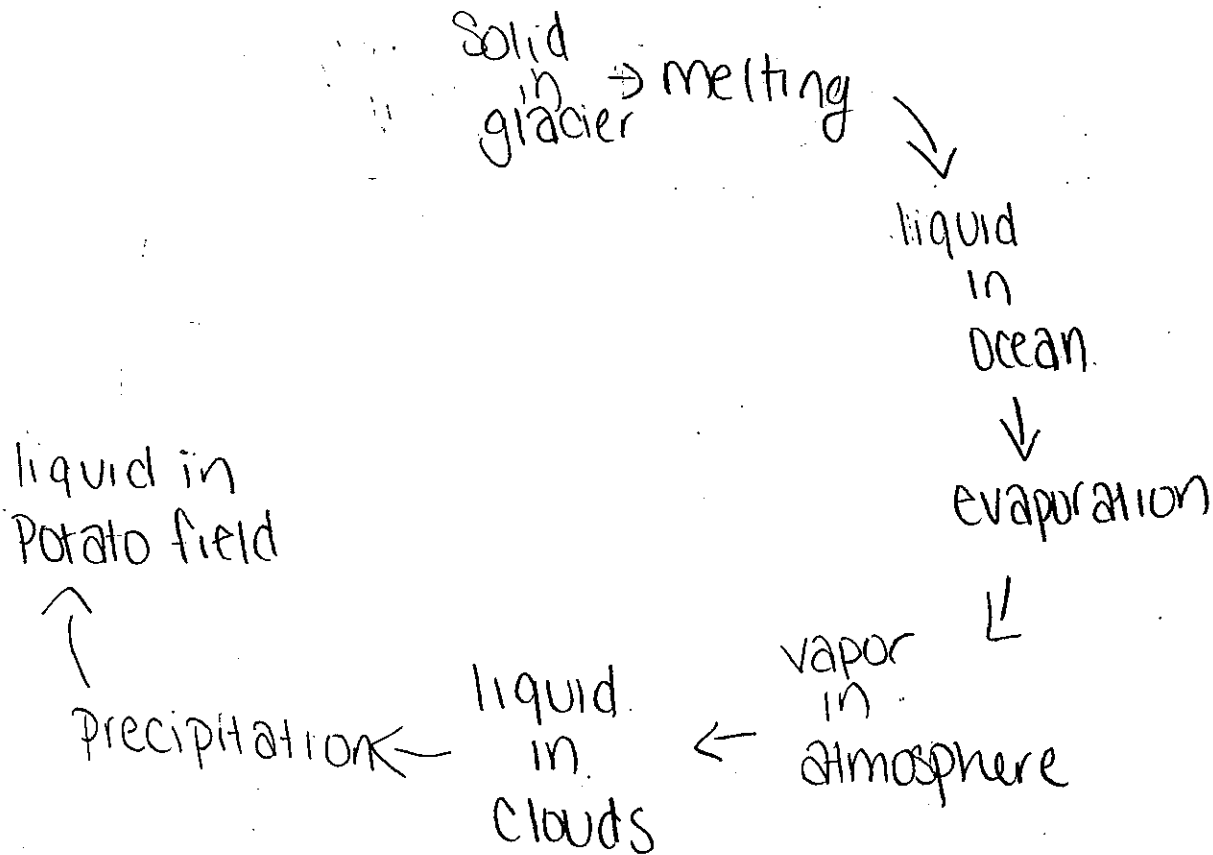 Solid
in
glacier → melting
liquid
in
ocean.
↓
evaporation
vapor
in
atmosphere
←
liquid
in
clouds
←
Precipitation
liquid in
Potato field